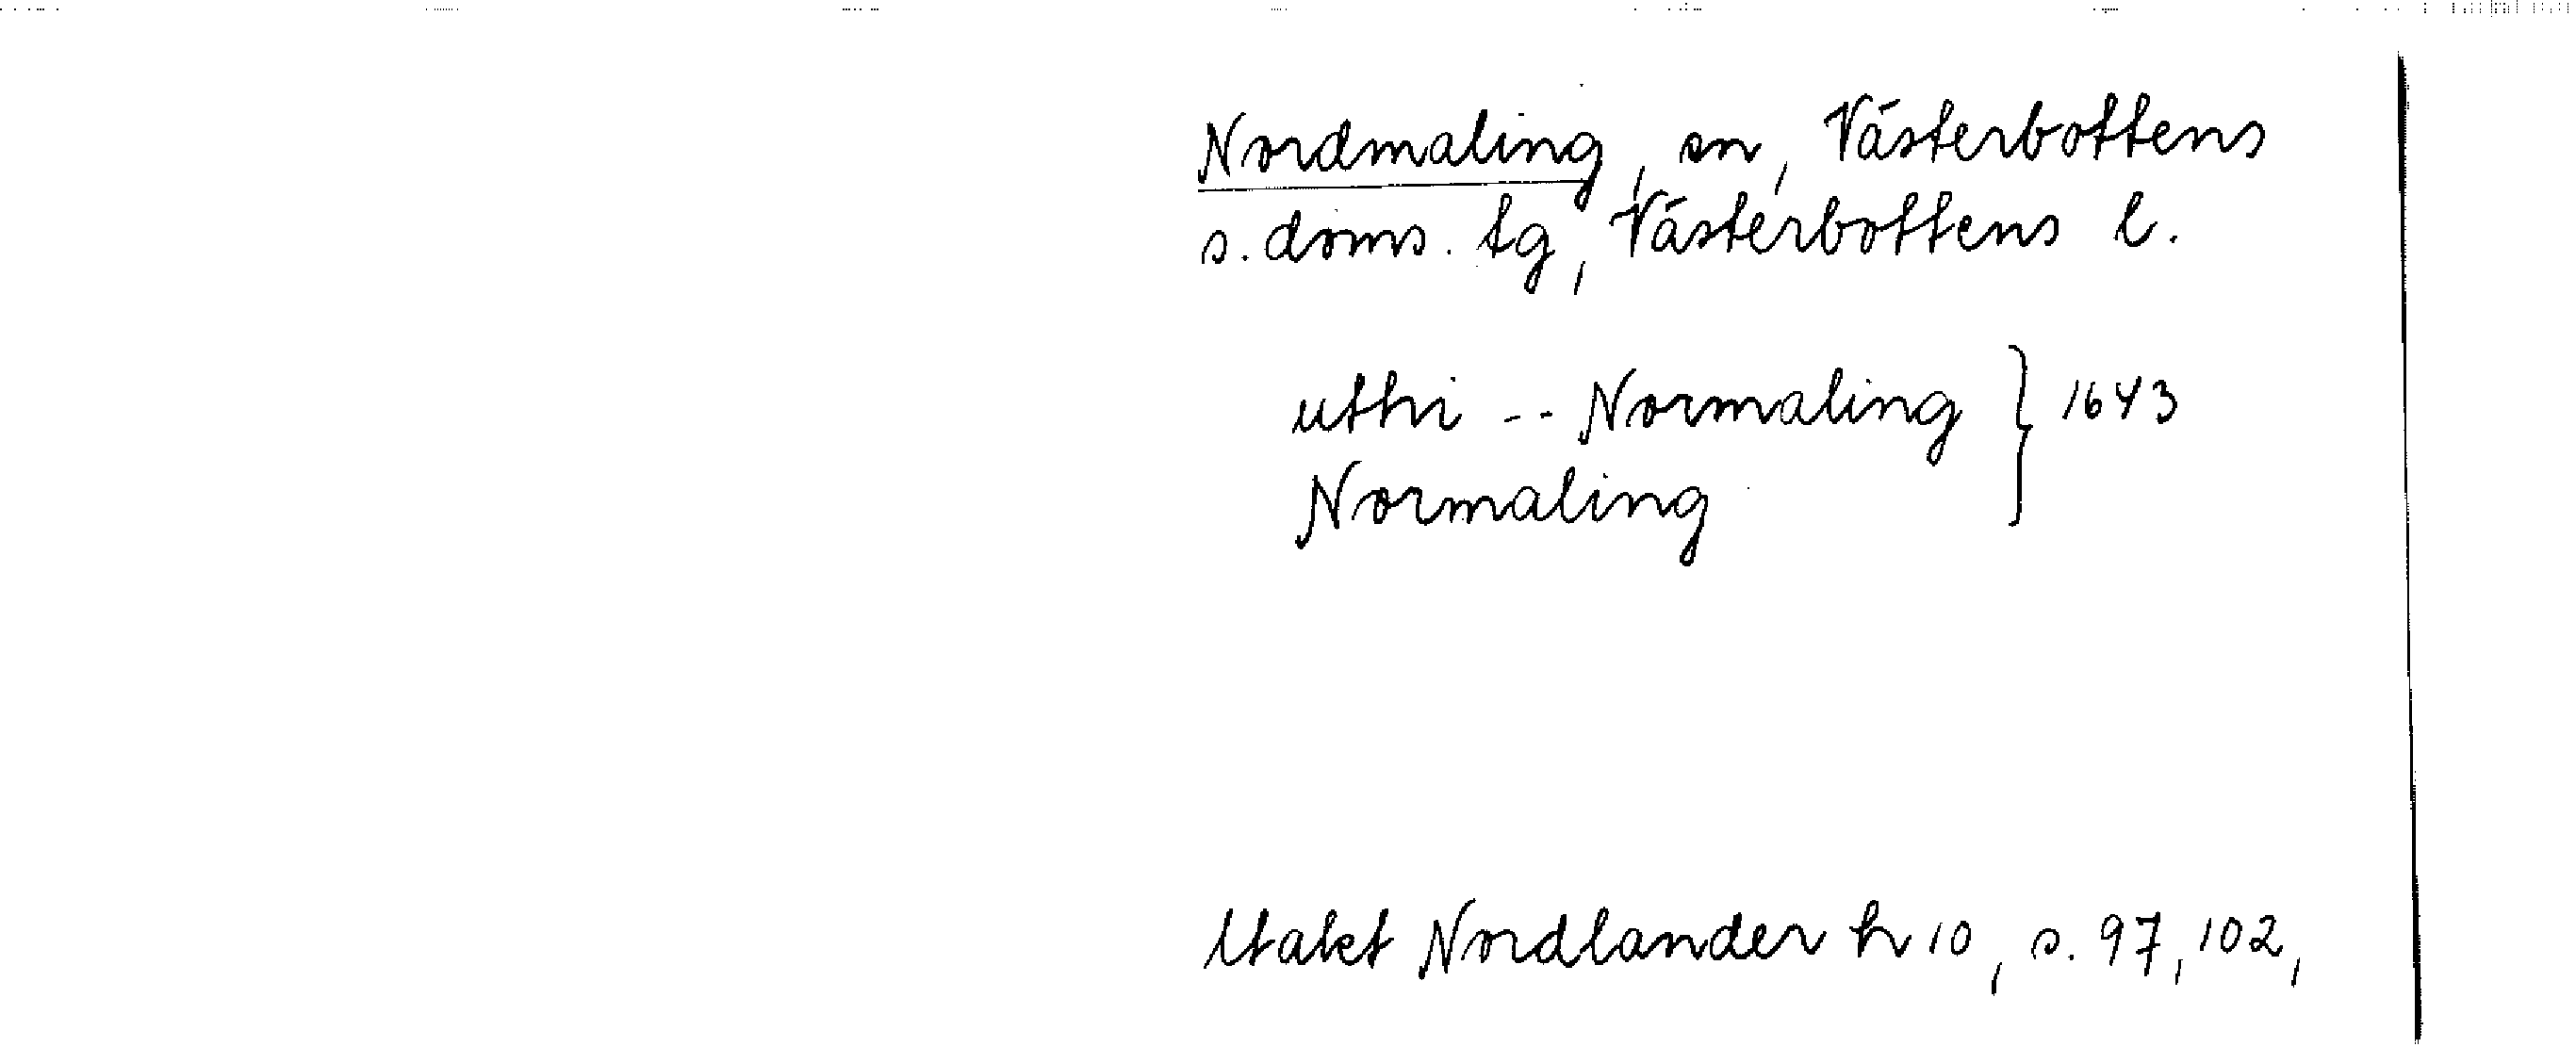 Nordmaling, sn, Västerbottens
s. doms. tg, Västerbottens l.
uthi -- Normaling } 1643
Normaling
Utakt Nordlander h 10, s. 97, 102,